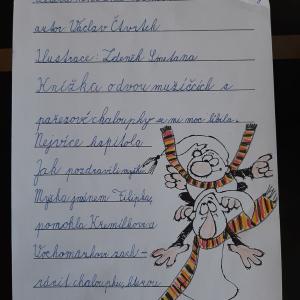 autor Václav Čtvrtek
Ilustrace: Zdeněk Smetana
Knížka o dvou mužíčcích z
pařezové chaloupky se mi moc líbila.
Nejvíce kapitola
Jak pozdravili myšku.
Myška jménem Filipka,
pomohla Křemílkovi a
Vochomůrkovi zach-
ránit chaloupku, kterou